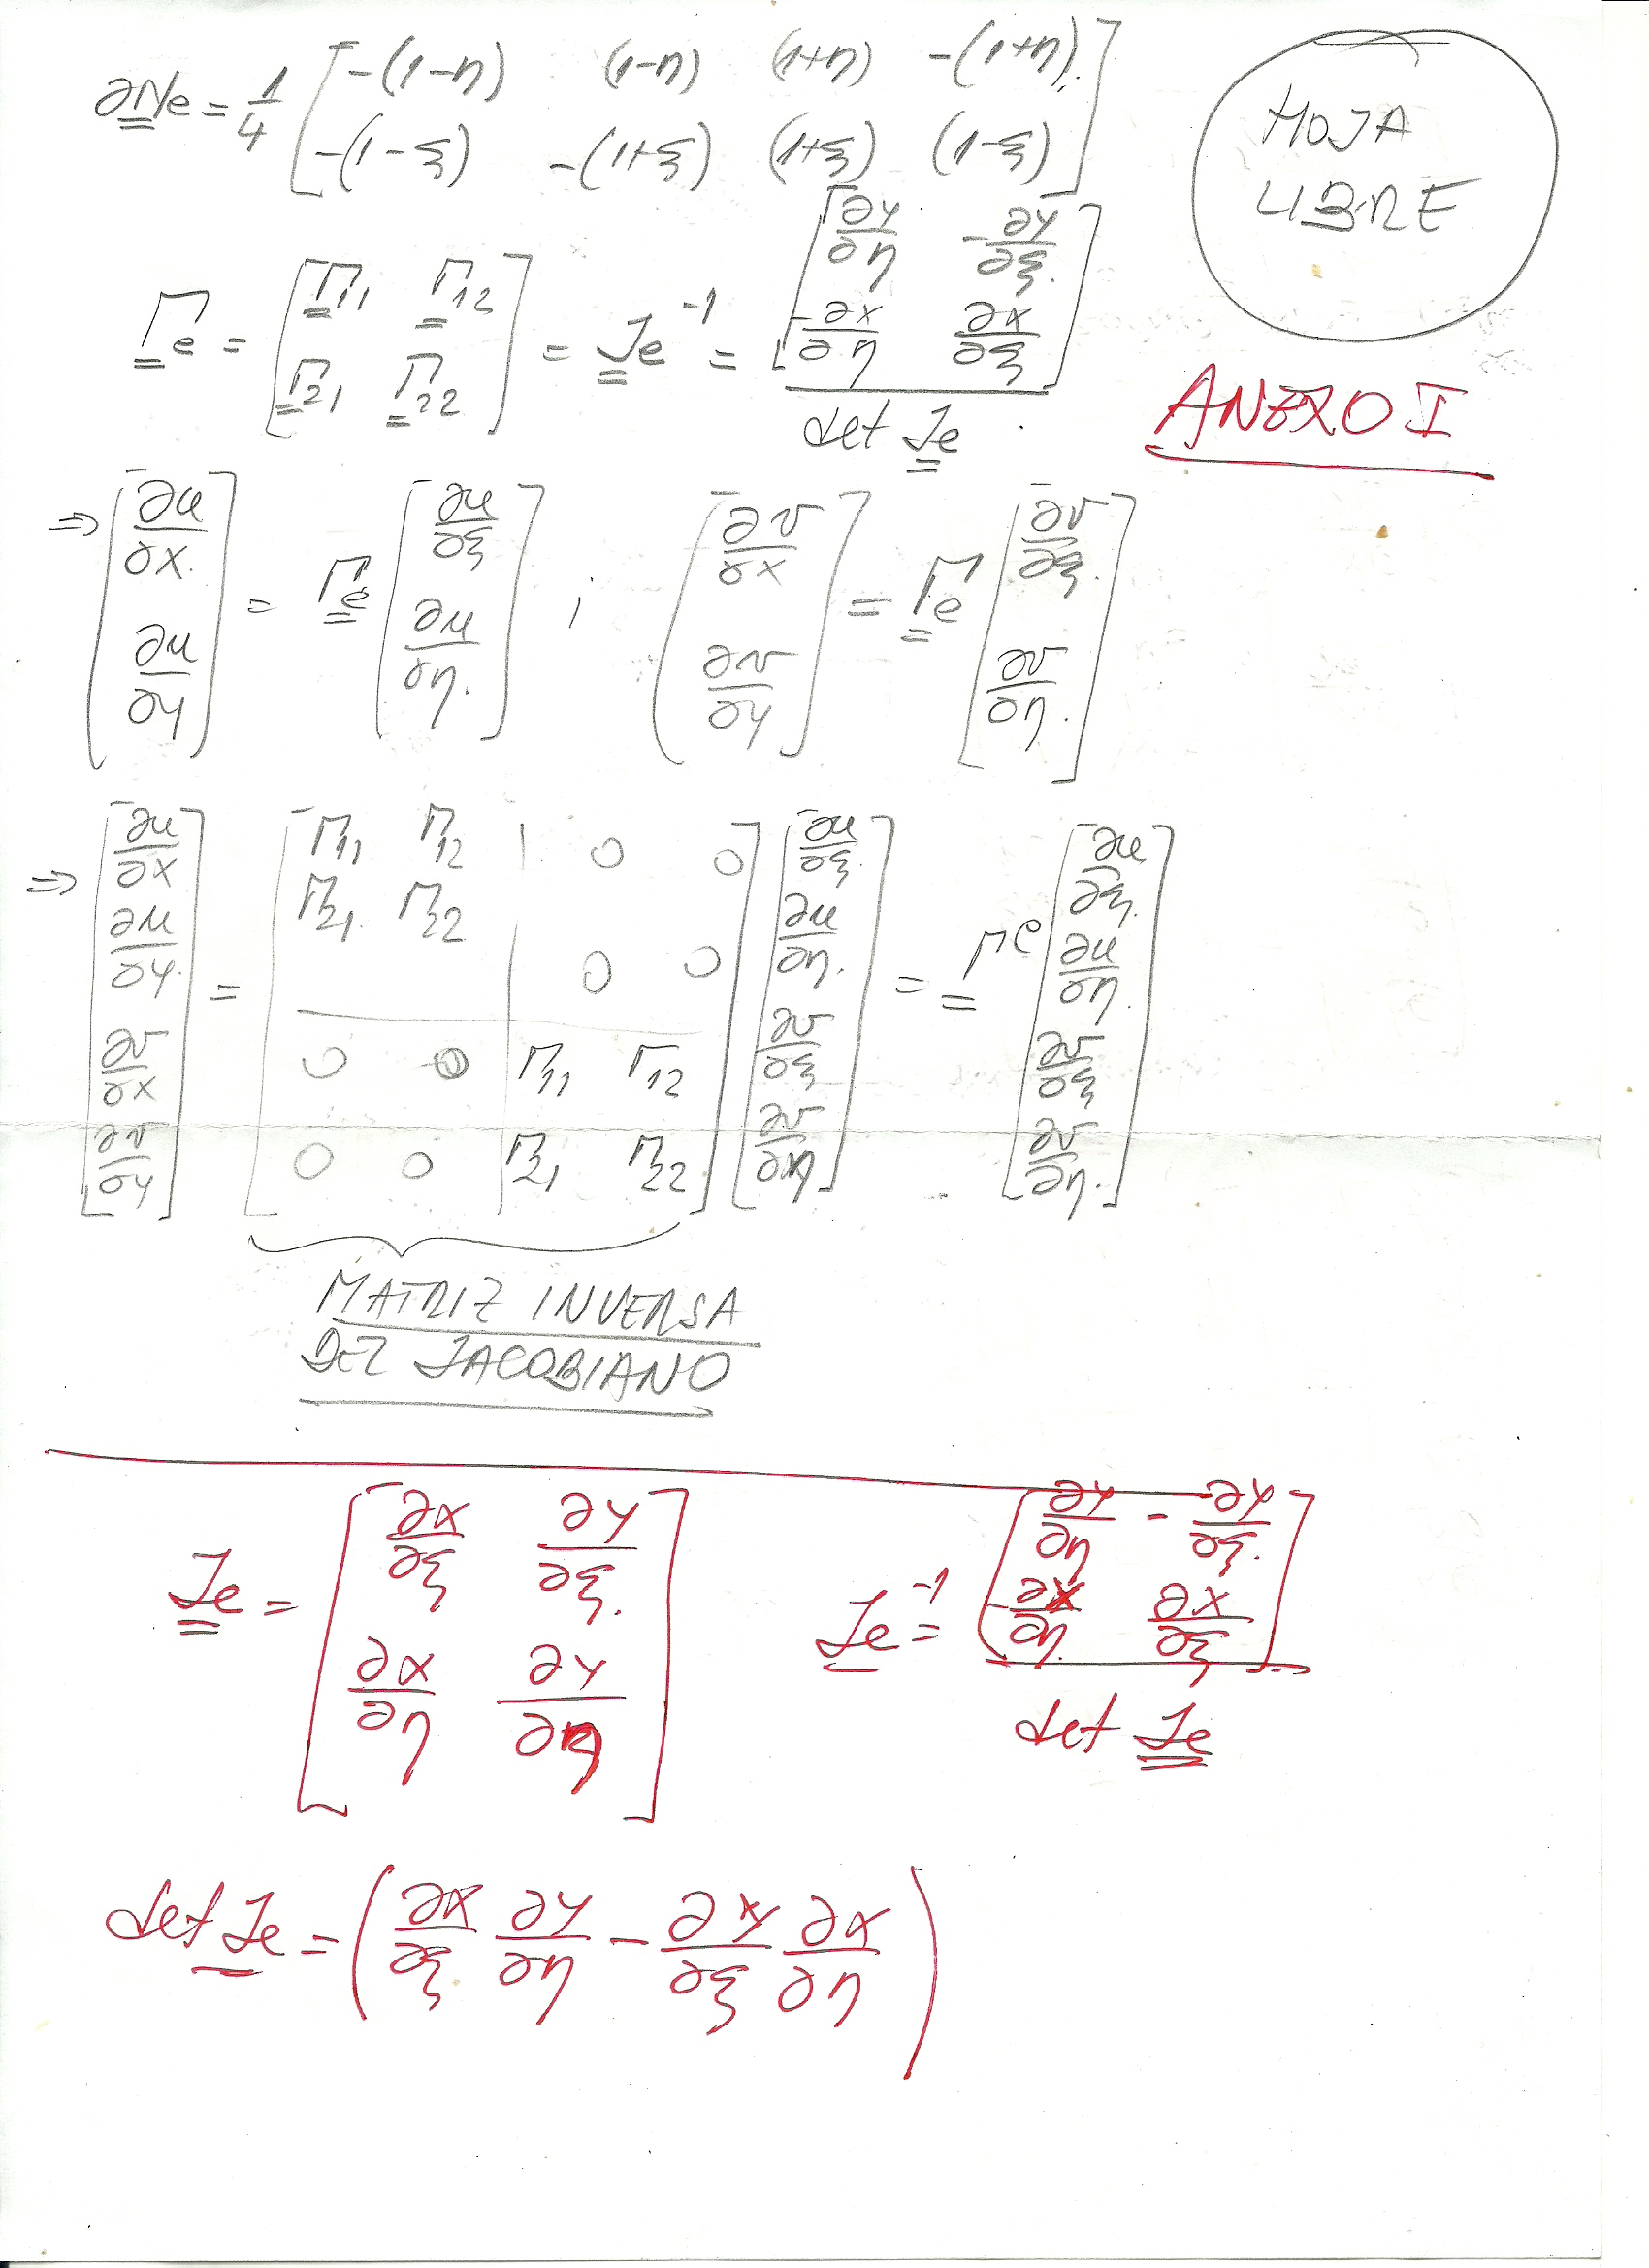 ∂N̲e = 1/4 [ -(1-η) (1-η) (1+η) -(1+η) ; -(1-ξ) -(1+ξ) (1+ξ) (1-ξ) ]
HOJA
LIBRE
Γe = [ Γ11 Γ12 ; Γ21 Γ22 ] = Je⁻¹ = [ ∂y/∂η -∂y/∂ξ ; -∂x/∂η ∂x/∂ξ ] / det Je
ANEXO I
⇒ [ ∂u/∂x ; ∂u/∂y ] = Γe [ ∂u/∂ξ ; ∂u/∂η ] ; [ ∂v/∂x ; ∂v/∂y ] = Γe [ ∂v/∂ξ ; ∂v/∂η ]
⇒ [ ∂u/∂x ; ∂u/∂y ; ∂v/∂x ; ∂v/∂y ] = [ Γ11 Γ12 | 0 0 ; Γ21 Γ22 | 0 0 ; 0 0 | Γ11 Γ12 ; 0 0 | Γ21 Γ22 ] [ ∂u/∂ξ ; ∂u/∂η ; ∂v/∂ξ ; ∂v/∂η ] = Γe [ ∂u/∂ξ ; ∂u/∂η ; ∂v/∂ξ ; ∂v/∂η ]
MATRIZ INVERSA
DEL JACOBIANO
Je = [ ∂x/∂ξ ∂y/∂ξ ; ∂x/∂η ∂y/∂η ] Je⁻¹ = [ ∂y/∂η -∂y/∂ξ ; -∂x/∂η ∂x/∂ξ ] / det Je
det Je = ( ∂x/∂ξ ∂y/∂η - ∂y/∂ξ ∂x/∂η )